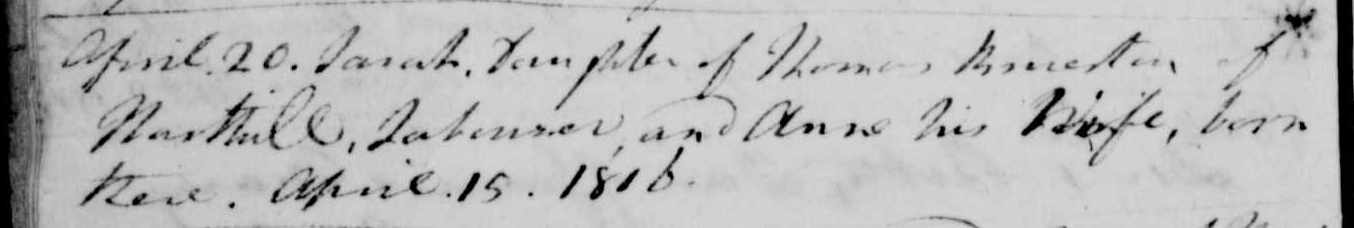 April. 20. Sarah, Daughter of Thomas of
Labourer, and Anne his Wife, born
there. April. 15. 1816.